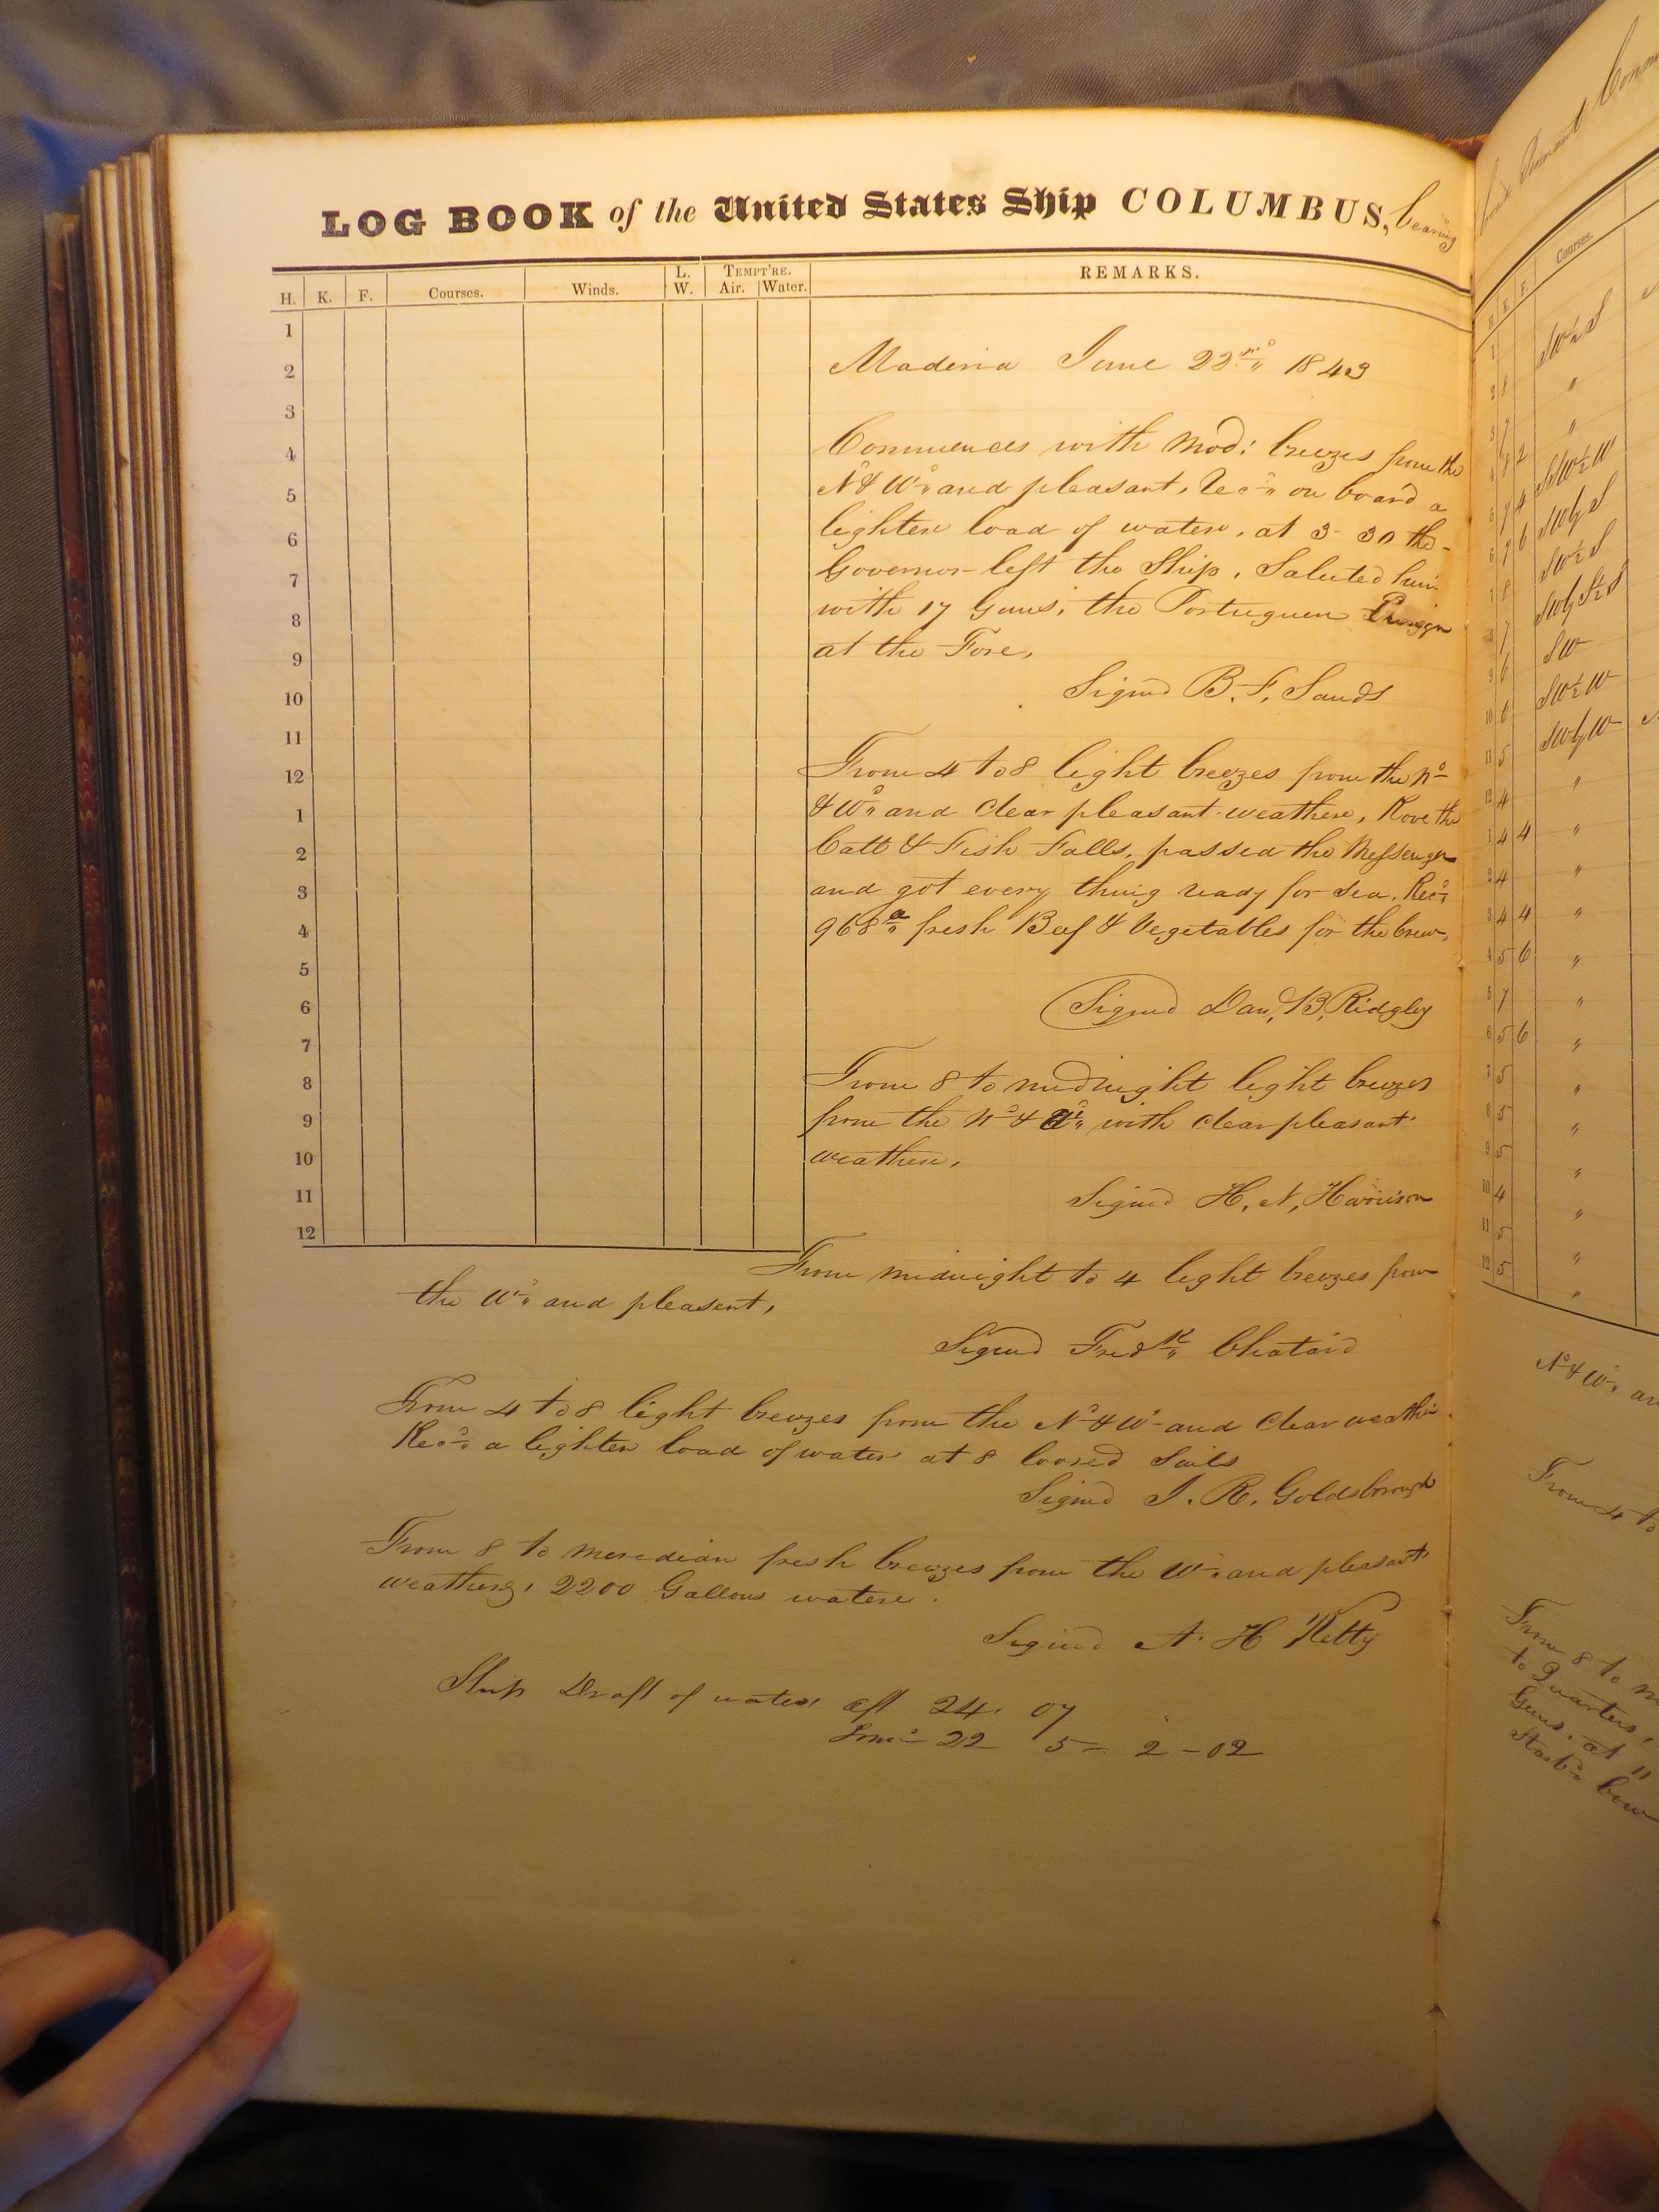 LOG BOOK of the United States Ship COLUMBUS, bearing
H. K. F. Courses. Winds. L. W. TEMPT'RE. Air. Water. REMARKS.
1
2
3
4
5
6
7
8
9
10
11
12
1
2
3
4
5
6
7
8
9
10
11
12
Maderia June 22nd 1843
Commences with Mod: breezes from the
Nd & Wd and pleasant, Recd on board a
lighter load of water, at 3-30 the
Governor left the Ship, Saluted him
with 17 Guns, the Portuguese Ensign
at the Fore,
Signed B. F. Sands
From 4 to 8 light breezes from the Nd
& Wd and clear pleasant weather, Rove the
Catt & Fish Falls, passed the Messenger
and got every thing ready for sea, Recd
968 lbs fresh Beef & Vegetables for the Crew,
Signed Dan. B. Ridgley
From 8 to midnight light breezes
from the Nd & Wd with clear pleasant
weather,
Signed H. N. Harrison
From midnight to 4 light breezes from
the Wd and pleasent,
Signed Fredk Chatard
From 4 to 8 light breezes from the Nd & Wd and Clear weather
Recd a lighter load of water at 8 loosed Sails
Signed J. R. Goldsborough
From 8 to meredian fresh breezes from the Wd and pleasant
weather, 2200 Gallons water.
Signed A. H Kelty
Ship Draft of water aft 24. 07
22 5 = 2-02
Courses.
SW½S
"
"
SSW½W
SWbyS
SW½S
SW
SW½W
SWbyW
"
Nd & Wd an
From 4 to
From 8 to m
to Quarters,
Guns, at 11
Starbd bow